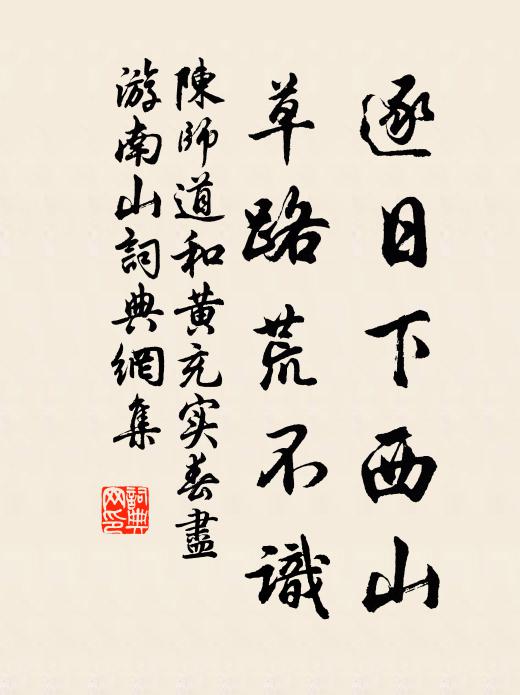 逐日下西山
草路荒不識
陳師道和黄充实春盡
游南山詞典網集
詞典
网印